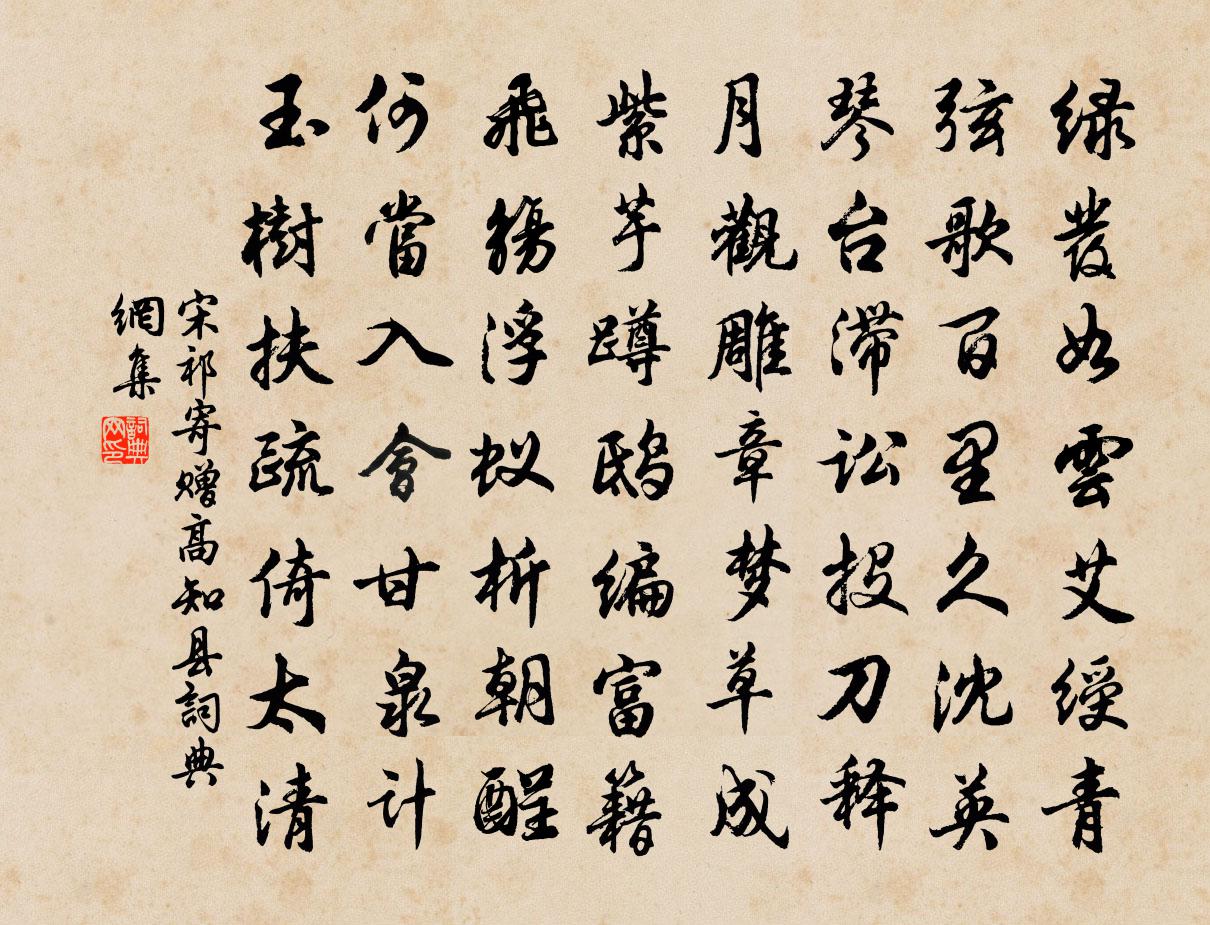 绿发如雲艾绶青
弦歌百里久沈英
琴台滞讼投刀释
月觀雕章梦草成
紫芋蹲鸱编富籍
飛觴浮蚁析朝酲
何當入會甘泉计
玉樹扶疏倚太清
宋祁寄赠高知县詞典
網集
詞典網印